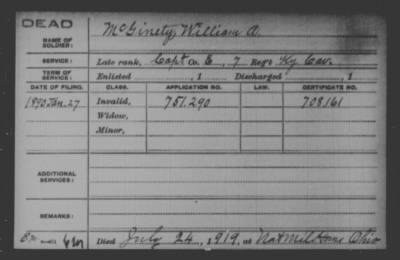 DEAD
NAME OF SOLDIER: McGinety, William A.
SERVICE: Late rank, Capt Co. E, 7 Reg't Ky Cav.
TERM OF SERVICE: Enlisted , 1 Discharged , 1
DATE OF FILING. CLASS. APPLICATION NO. LAW. CERTIFICATE NO.
1890 Jan. 27 Invalid, 751.290 708161
Widow,
Minor,
ADDITIONAL SERVICES:
REMARKS:
Died July 24, 1919, at Nat Mil Home Ohio